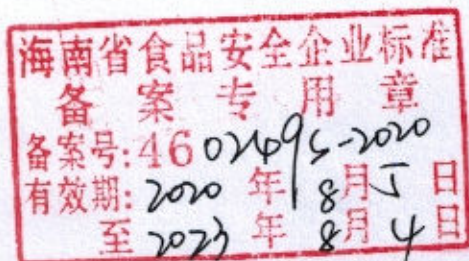 海南省食品安全企业标准
备案专用章
备案号:460249S-2020
有效期:2020年8月5日
至2023年8月4日